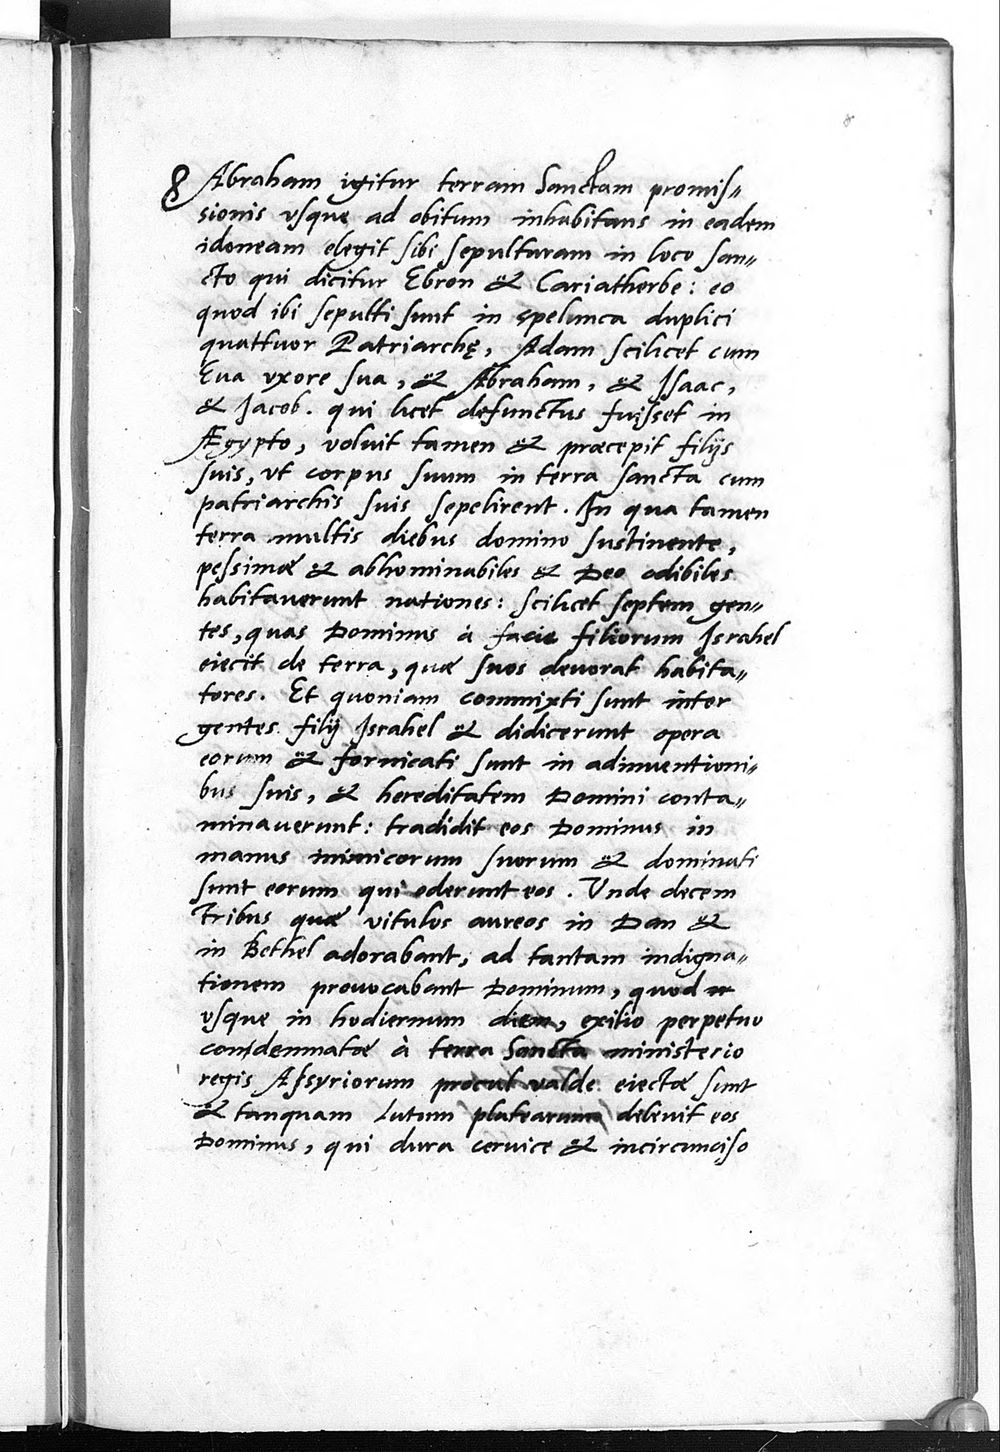 8
Abraham igitur terram Sanctam promis=
sionis vsque ad obitum inhabitans in eadem
idoneam elegit sibi sepulturam in loco san=
cto qui dicitur Ebron & Cariatherbe: eo
quod ibi sepulti sunt in spelunca duplici
quattuor Patriarchę, Adam scilicet cum
Eua vxore sua, & Abraham, & Isaac,
& Iacob. qui licet defunctus fuisset in
Ægypto, voluit tamen & præcepit filijs
suis, vt corpus suum in terra sancta cum
patriarchis suis sepelirent. In qua tamen
terra multis diebus domino sustinente,
pessimæ & abhominabiles & Deo odibiles
habitauerunt nationes: scilicet septem gen=
tes, quas Dominus à facie filiorum Israhel
eiecit de terra, quæ suos deuorat habita=
tores. Et quoniam commixti sunt inter
gentes filij Israhel & didicerunt opera
eorum & fornicati sunt in adinuentioni=
bus suis, & hereditatem Domini conta=
minauerunt: tradidit eos Dominus in
manus inimicorum suorum & dominati
sunt eorum qui oderunt eos. Unde decem
Tribus quæ vitulos aureos in Dan &
in Bethel adorabant, ad tantam indigna=
tionem prouocabant Dominum, quod
vsque in hodiernum diem, exilio perpetuo
condemnatæ à terra Sancta ministerio
regis Assyriorum procul valde eiectæ sunt
& tanquam lutum platearum deleuit eos
Dominus, qui dura ceruice & incircunciso